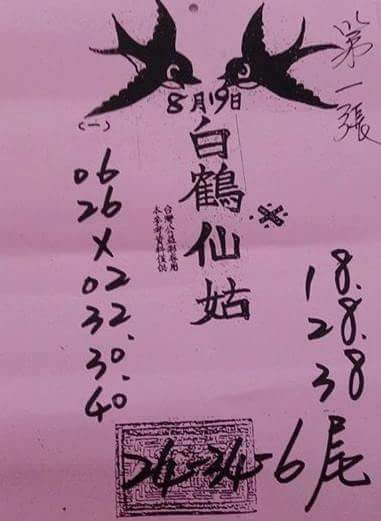 第一張
8月19日
(一)
白鶴仙姑
台灣公益彩券用
本資料僅供
06
26
×
02
32.
30.
40
18.
28.
38
24-34-6尾